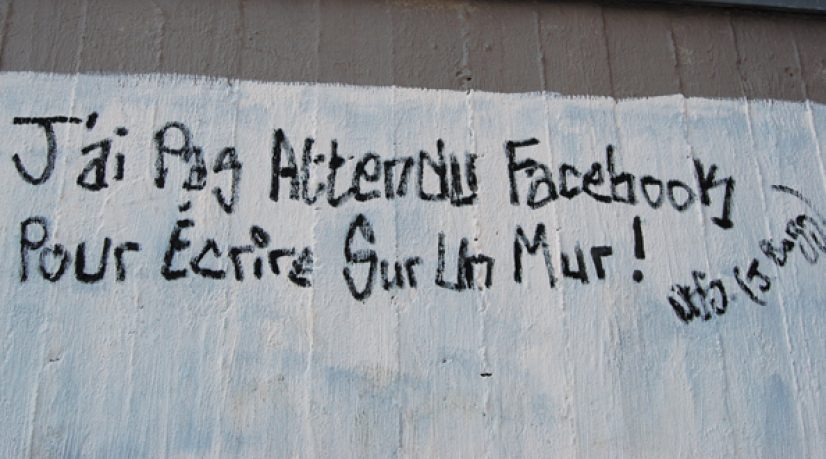 J'ai Pas Attendu Facebook
Pour Écrire Sur Un Mur !